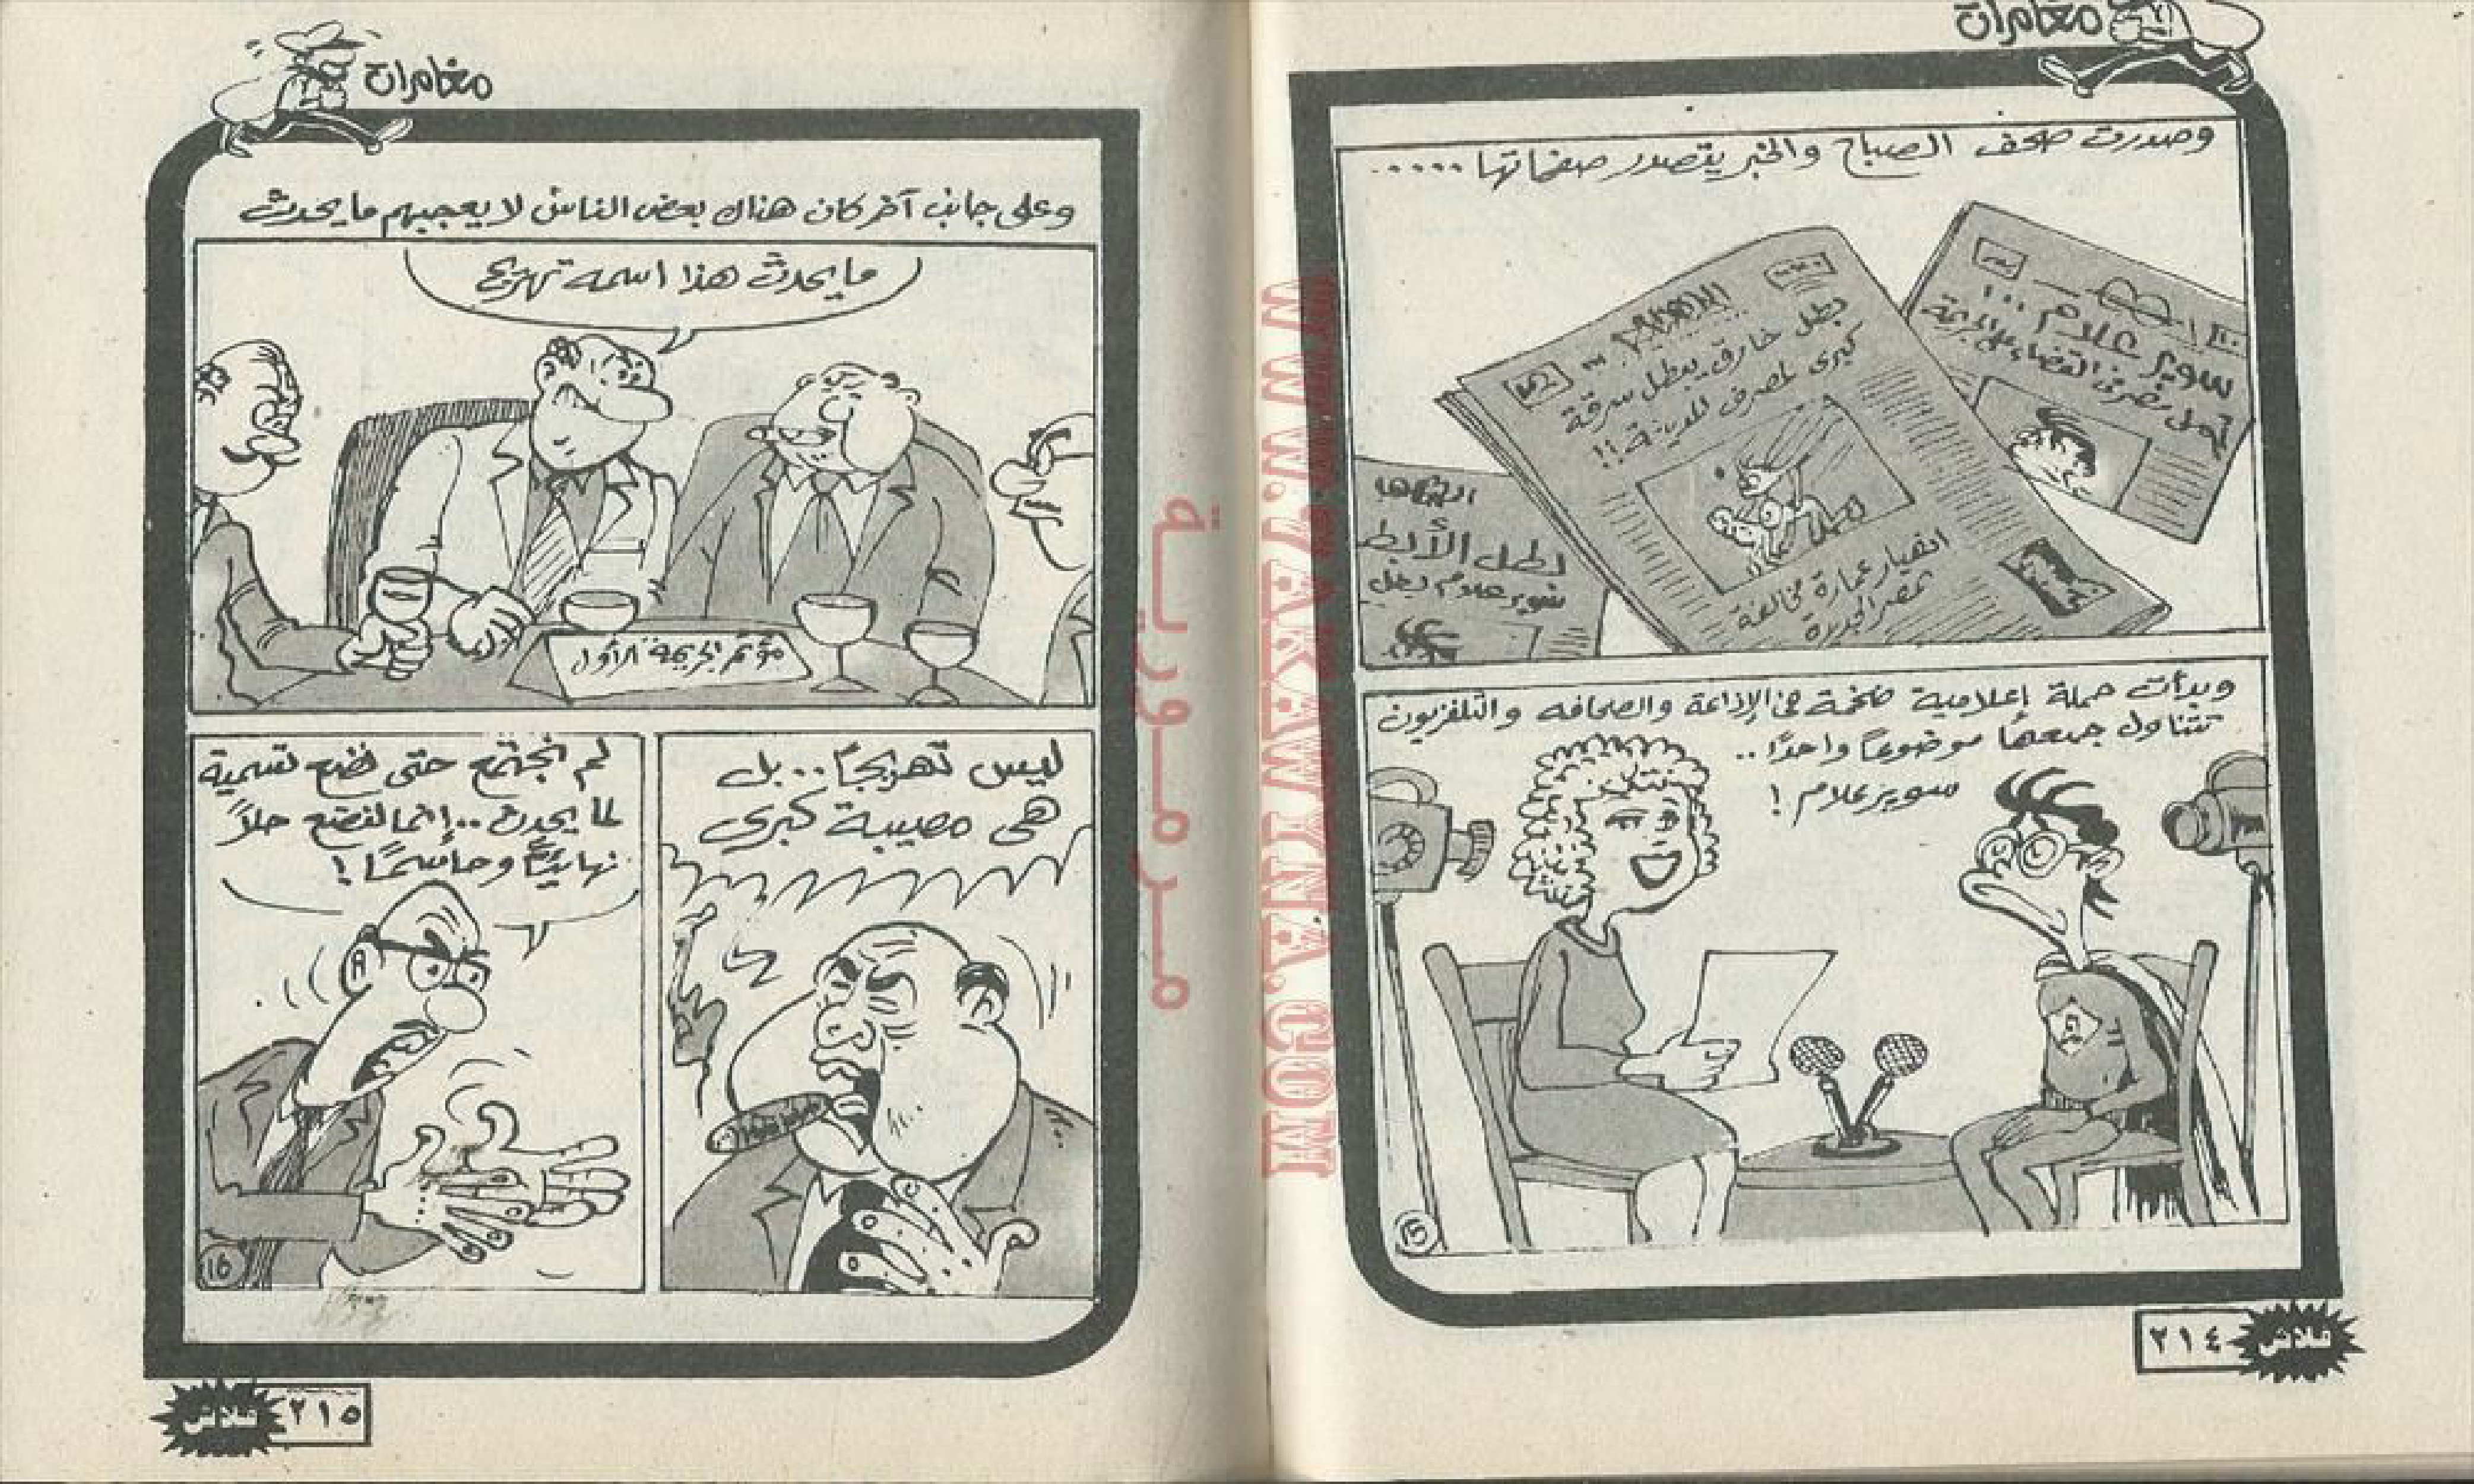 مغامرات
وصدرت صحف الصباح والخبر يتصدر صفحاتها .....
سوبر علام ..
تولى مصر في القضاء على الجريمة
بطل خارق يبطل سرقة
كبرى لمصرف المدينة !!
انهيار عمارة مخالفة
بمصر الجديدة
بطل الأبط
سوبر علام بطل
وبدأت حملة إعلامية ضخمة في الإذاعة والصحافه والتلفزيون
تتناول جميعها موضوعاً واحداً ..
سوبر علام !
15
٢١٤
فلاش
مغامرات
وعلى جانب آخر كان هناك بعض الناس لا يعجبهم ما يحدث
ما يحدث هذا اسمه تهريج
مؤتمر الجريمة الأول
ليس تهريجاً .. بل
هي مصيبة كبرى
لم نجتمع حتى نضع تسمية
لما يحدث .. إنما لنضع حلاً
نهائياً وحاسماً !
16
٢١٥
فلاش
WWW.MARAWYINA.COM
مـرمـوريـة